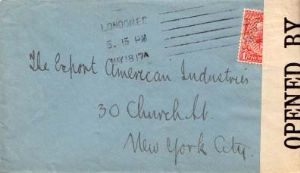 LONDON
5. 15 PM
18 17A
The Export American Industries
30 Church St.
New York City.
OPENED BY